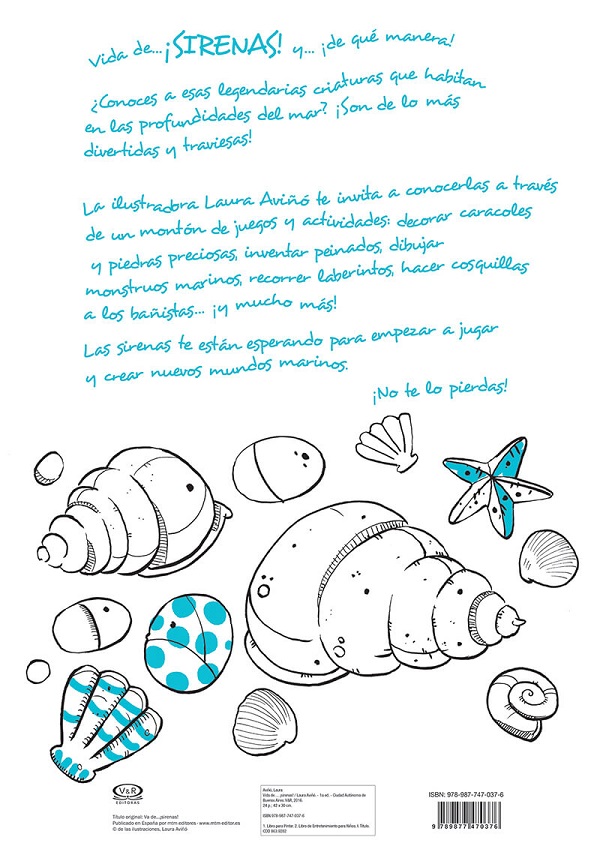 Vida de... ¡SIRENAS! y... ¡de qué manera!
¿Conoces a esas legendarias criaturas que habitan
en las profundidades del mar? ¡Son de lo más
divertidas y traviesas!
La ilustradora Laura Aviñó te invita a conocerlas a través
de un montón de juegos y actividades: decorar caracoles
y piedras preciosas, inventar peinados, dibujar
monstruos marinos, recorrer laberintos, hacer cosquillas
a los bañistas... ¡y mucho más!
Las sirenas te están esperando para empezar a jugar
y crear nuevos mundos marinos.
¡No te lo pierdas!
V&R
EDITORAS
Título original: Va de...¡sirenes!
Publicado en España por mtm editores · www.mtm-editor.es
© de las ilustraciones, Laura Aviñó
Aviñó, Laura
Vida de... ¡sirenas! / Laura Aviñó. - 1a ed. - Ciudad Autónoma de
Buenos Aires: V&R, 2016.
24 p.; 43 x 30 cm.
ISBN 978-987-747-037-6
1. Libro para Pintar. 2. Libro de Entretenimiento para Niños. I. Título.
CDD 863.9282
ISBN: 978-987-747-037-6
9 789877 470376